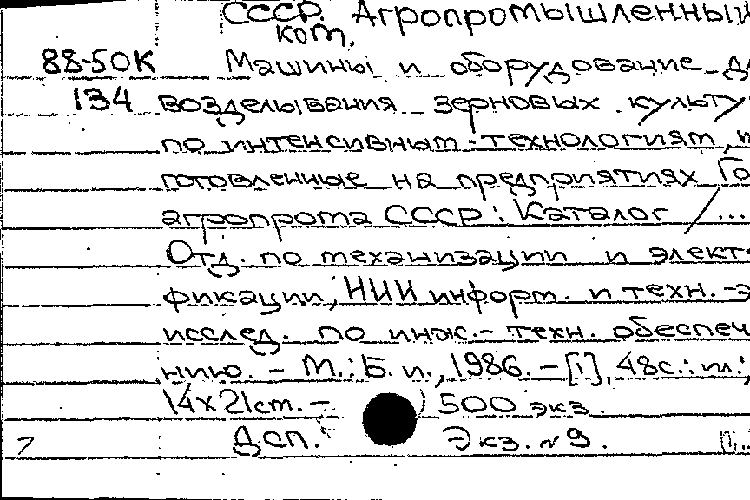 СССР. Агропромышленный
ком.
88-50К Машины и оборудование
134 возделывания зерновых культу
по интенсивным технологиям,
готовленные на предприятиях Го
агропрома СССР: Каталог / ...
Отд. по механизации и элект
фикации, НИИ информ. и техн.-э
исслед. по инж.-техн. обеспеч
нию. – М.: Б. и., 1986. – [1], 48с.: ил.;
14х21см. – ) 500 экз.
7 Дсп. Экз. №9.